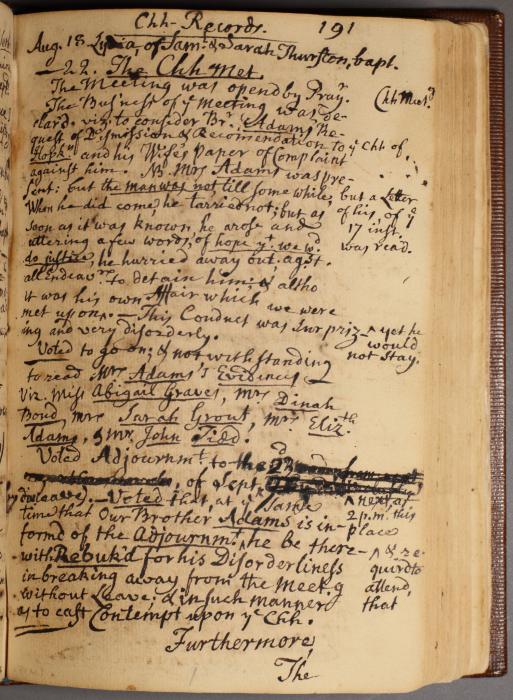 Chh- Records. 191
Aug. 18. Lydia, of Sam: & Sarah Thurston, bapt.
—22. The Chh met.
The Meeting was open'd by Pray.r
The Bus'ness of ye meeting was de-
clar'd. viz. to consider Br. Adams's Re-
quest of Dismission & Recom̄endation to ye Chh of
Hopk.n and his Wife's Paper of Complaint
against him. NB Mrs Adams was pre-
sent: but the man was not till some while, but a Letter
When he did come, he tarried not; but as of his, of ye
soon as it was known, he arose and 17 inst.
uttering a few words, of hope yt. we wd was read.
do justice, he hurried away out agst.
all Endeavrs to detain him; & altho
it was his own Affair which we were
met upon. — This Conduct was Surpriz- ^ yet he
ing and very disorderly. would
Voted to go on; & notwithstanding not stay.
to read Mrs Adams's Evidences
Viz. Miss Abigail Graves, Mrs Dinah
Bond, Mrs Sarah Grout, Mrs Elizth
Adams, & Mr. John Tidd.
Voted Adjournmt to the 2d
of Sept.
(by divine leave). — Voted that, at ye same ^ next, at
time that Our Brother Adams is in- 2 p.m. this
form'd of the Adjournmt. ^ he be there- place
with Rebuk'd for his Disorderliness ^ & re-
in breaking away from the Meetg quird to
without Leave, & in such manner attend,
as to cast Contempt upon ye Chh. that
Furthermore,
The
Chh Meetg